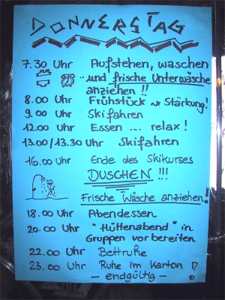 DONNERSTAG
7.30 Uhr Aufstehen, waschen
und frische Unterwäsche
anziehen!!
8.00 Uhr Frühstück → Stärkung!
9.00 Uhr Skifahren
12.00 Uhr Essen ... relax!
13.00/13.30 Uhr Skifahren
16.00 Uhr Ende des Skikurses
DUSCHEN !!!
Frische Wäsche anziehen!
18.00 Uhr Abendessen
20.00 Uhr "Hüttenabend" in
Gruppen vorbereiten
22.00 Uhr Bettruhe
23.00 Uhr Ruhe im Karton !
- endgültig -